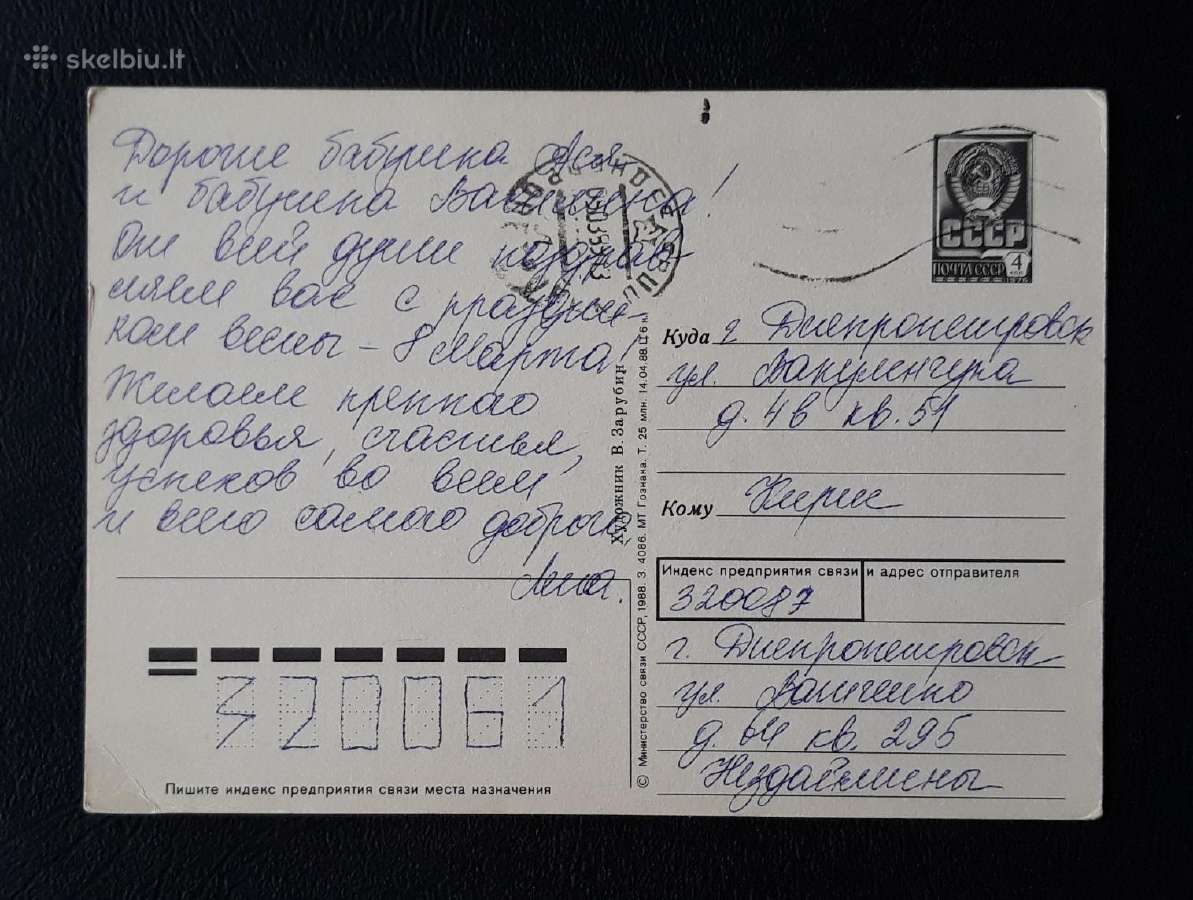 skelbiu.lt
Дорогие бабушка Ася
и бабушка Валичка!
От всей души поздрав-
ляем вас с праздни-
ком весны - 8 Марта!
Желаем крепкого
здоровья, счастья,
успехов во всем
и всего самого доброго.
СССР
ПОЧТА СССР
4
коп
1976
Куда г. Днепропетровск
ул. Вакуленчука
д. 4в кв. 51
Кому
Индекс предприятия связи и адрес отправителя
320087
г. Днепропетровск
ул.
д. 64 кв. 295
320061
Пишите индекс предприятия связи места назначения
© Министерство связи СССР, 1988. З. 4086. МТ Гознака. Т. 25 млн. 14.04.88. Ц. 6 к.
Художник В. Зарубин